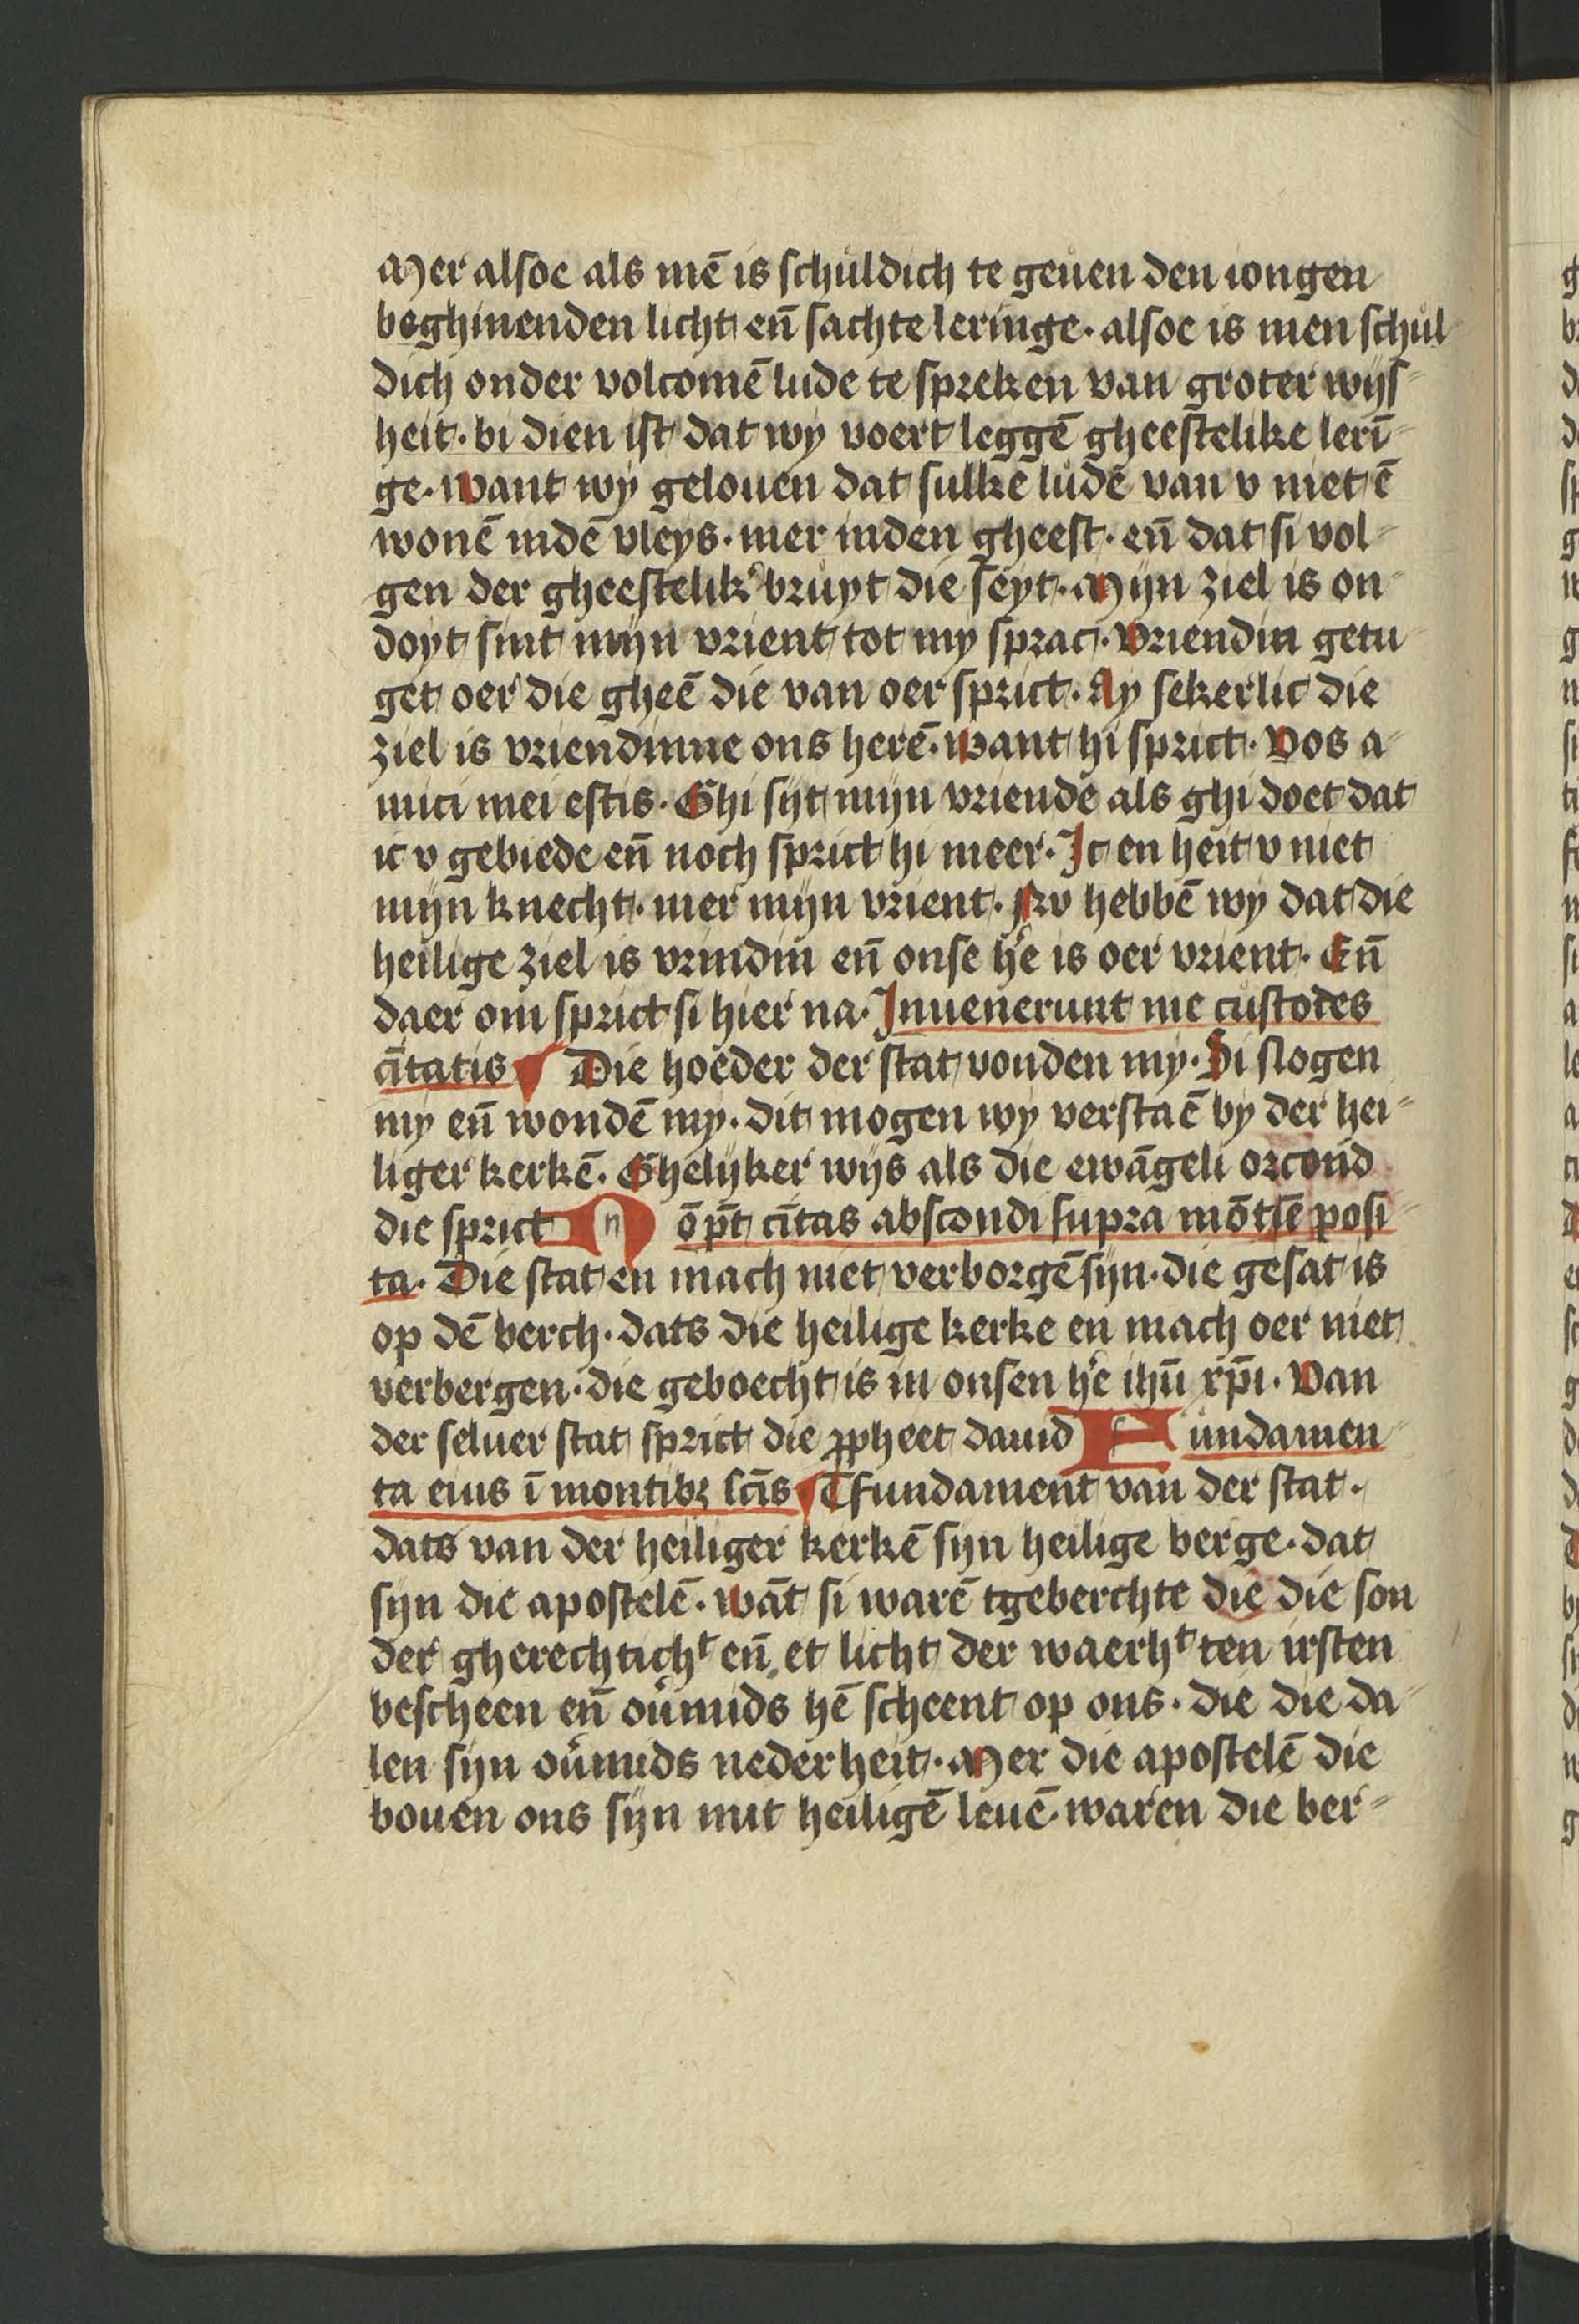 Mer alsoe als mē is schuldich te geuen den iongen
beghinenden licht en̄ sachte leringe · alsoe is men schul
dich onder volcomē lude te spreken van groter wijs
heit · bi dien ist dat wy voert leggē gheestelike lerī
ge · Want wy gelouen dat sulkē ludē van v niet ē
wonē indē vleys · mer inden gheest · en̄ dat si vol
gen der gheestelik' bruyt die seyt · Mijn ziel is on
doyt sint mijn vrient tot my sprac · Vriendin getu
get oer die gheē die van oer sprict · Ay sekerlic die
ziel is vriendinne ons herē · Want hi sprict · Vos a
mici mei estis · Ghi sijt mijn vriende als ghi doet dat
ic v gebiede en̄ noch sprict hi meer · Ic en heit v niet
mijn knecht · mer mijn vrient · Nv hebbē wy dat die
heilige ziel is vrindin en̄ onse h'e is oer vrient · En̄
daer om sprict si hier na · Inuenerunt me custodes
cītatis Die hoeder der stat vonden my · Si slogen
my en̄ wondē my · dit mogen wy verstaē by der hei
liger kerkē · Ghelijker wijs als die ewāgeli orcond
die sprict N ō pt̄ cītas abscondi supra mōtē posi
ta · Die stat en mach niet verborgē sijn · die gesat is
op dē berch · dats die heilige kerke en mach oer niet
verbergen · die geboecht is in onsen h'e ihū xp̄i · Van
der seluer stat sprict die ꝓpheet dauid F undamen
ta eius ī montibꝫ sc̄is Tfundament van der stat ·
dats van der heiliger kerkē sijn heilige berge · dat
sijn die apostelē · Wāt si warē tgeberchte die die son
der gherechtichᵗ en̄ et licht der waerhᵗ ten irsten
bescheen en̄ ou'mids hē scheent op ons · die die da
len sijn ou'mids nederheit · Mer die apostelē die
bouen ons sijn mit heiligē leuē · waren die ber